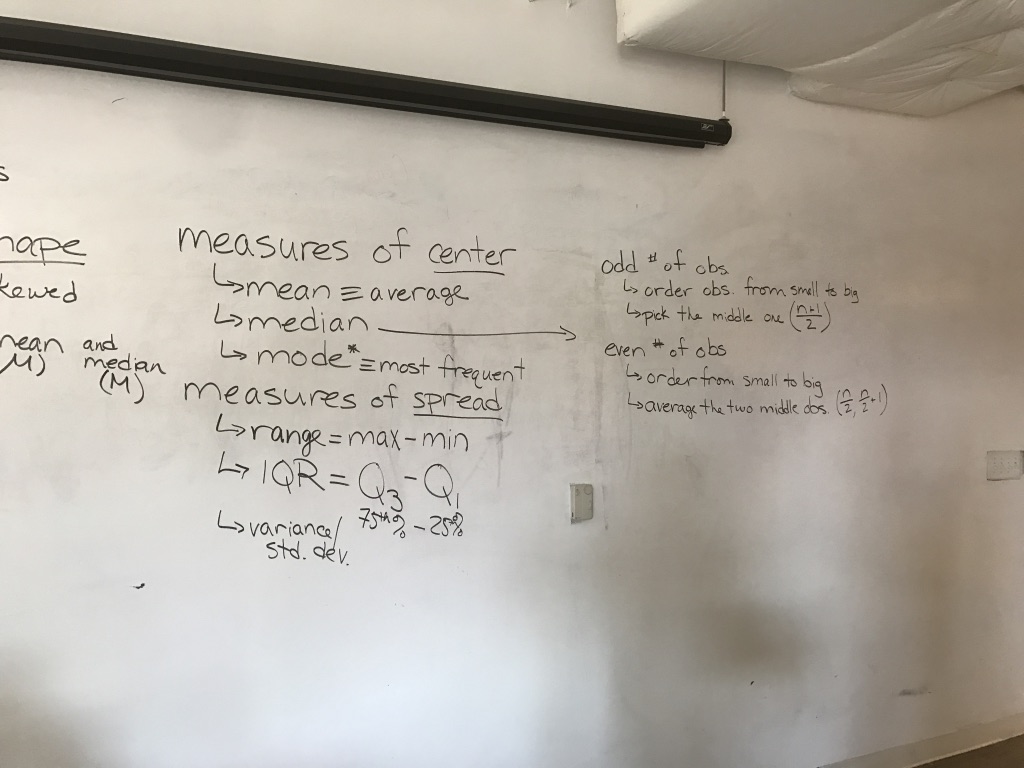 s
hape
kewed
mean and
(M) median
(M)
measures of center
↳mean ≡ average
↳median →
↳ mode* ≡ most frequent
measures of spread
↳range = max - min
↳ IQR = Q3 - Q1
75th% - 25th%
↳variance/
std. dev.
odd # of obs
↳ order obs. from small to big
↳pick the middle one (n+1/2)
even # of obs
↳order from small to big
↳average the two middle obs. (n/2, n/2+1)